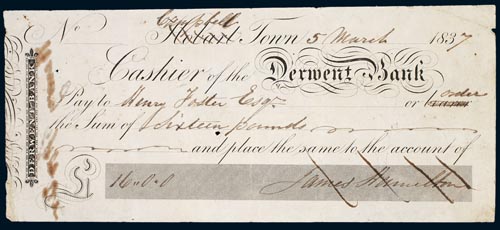 Campbell
No Hobart Town 5 March 1837
Cashier of the Derwent Bank
Pay to Henry Foster Esqr. or bearer order
the Sum of Sixteen pounds
and place the same to the account of
£ 16 „ 0 „ 0 James Hamilton
DERWENT BANK